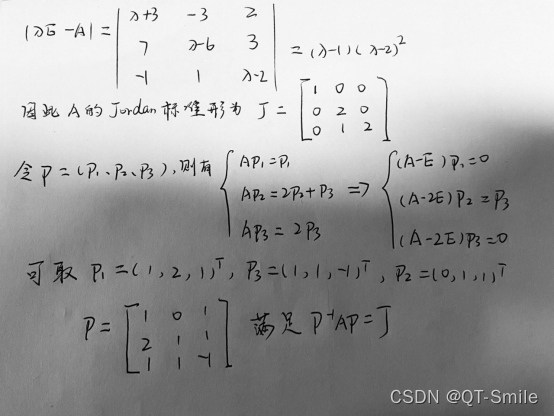 |λE-A| = | λ+3 -3 2 |
| 7 λ-6 3 | = (λ-1)(λ-2)²
| -1 1 λ-2 |
因此 A 的 Jordan 标准形为 J = [ 1 0 0
0 2 0
0 1 2 ]
令 P = (P₁、P₂、P₃), 则有 { AP₁=P₁ { (A-E)P₁=0
AP₂=2P₂+P₃ ⇒ (A-2E)P₂=P₃
AP₃=2P₃ (A-2E)P₃=0
可取 P₁=(1,2,1)ᵀ, P₃=(1,1,-1)ᵀ, P₂=(0,1,1)ᵀ
P = [ 1 0 1
2 1 1 满足 P⁻¹AP=J
1 1 -1 ]
CSDN @QT-Smile